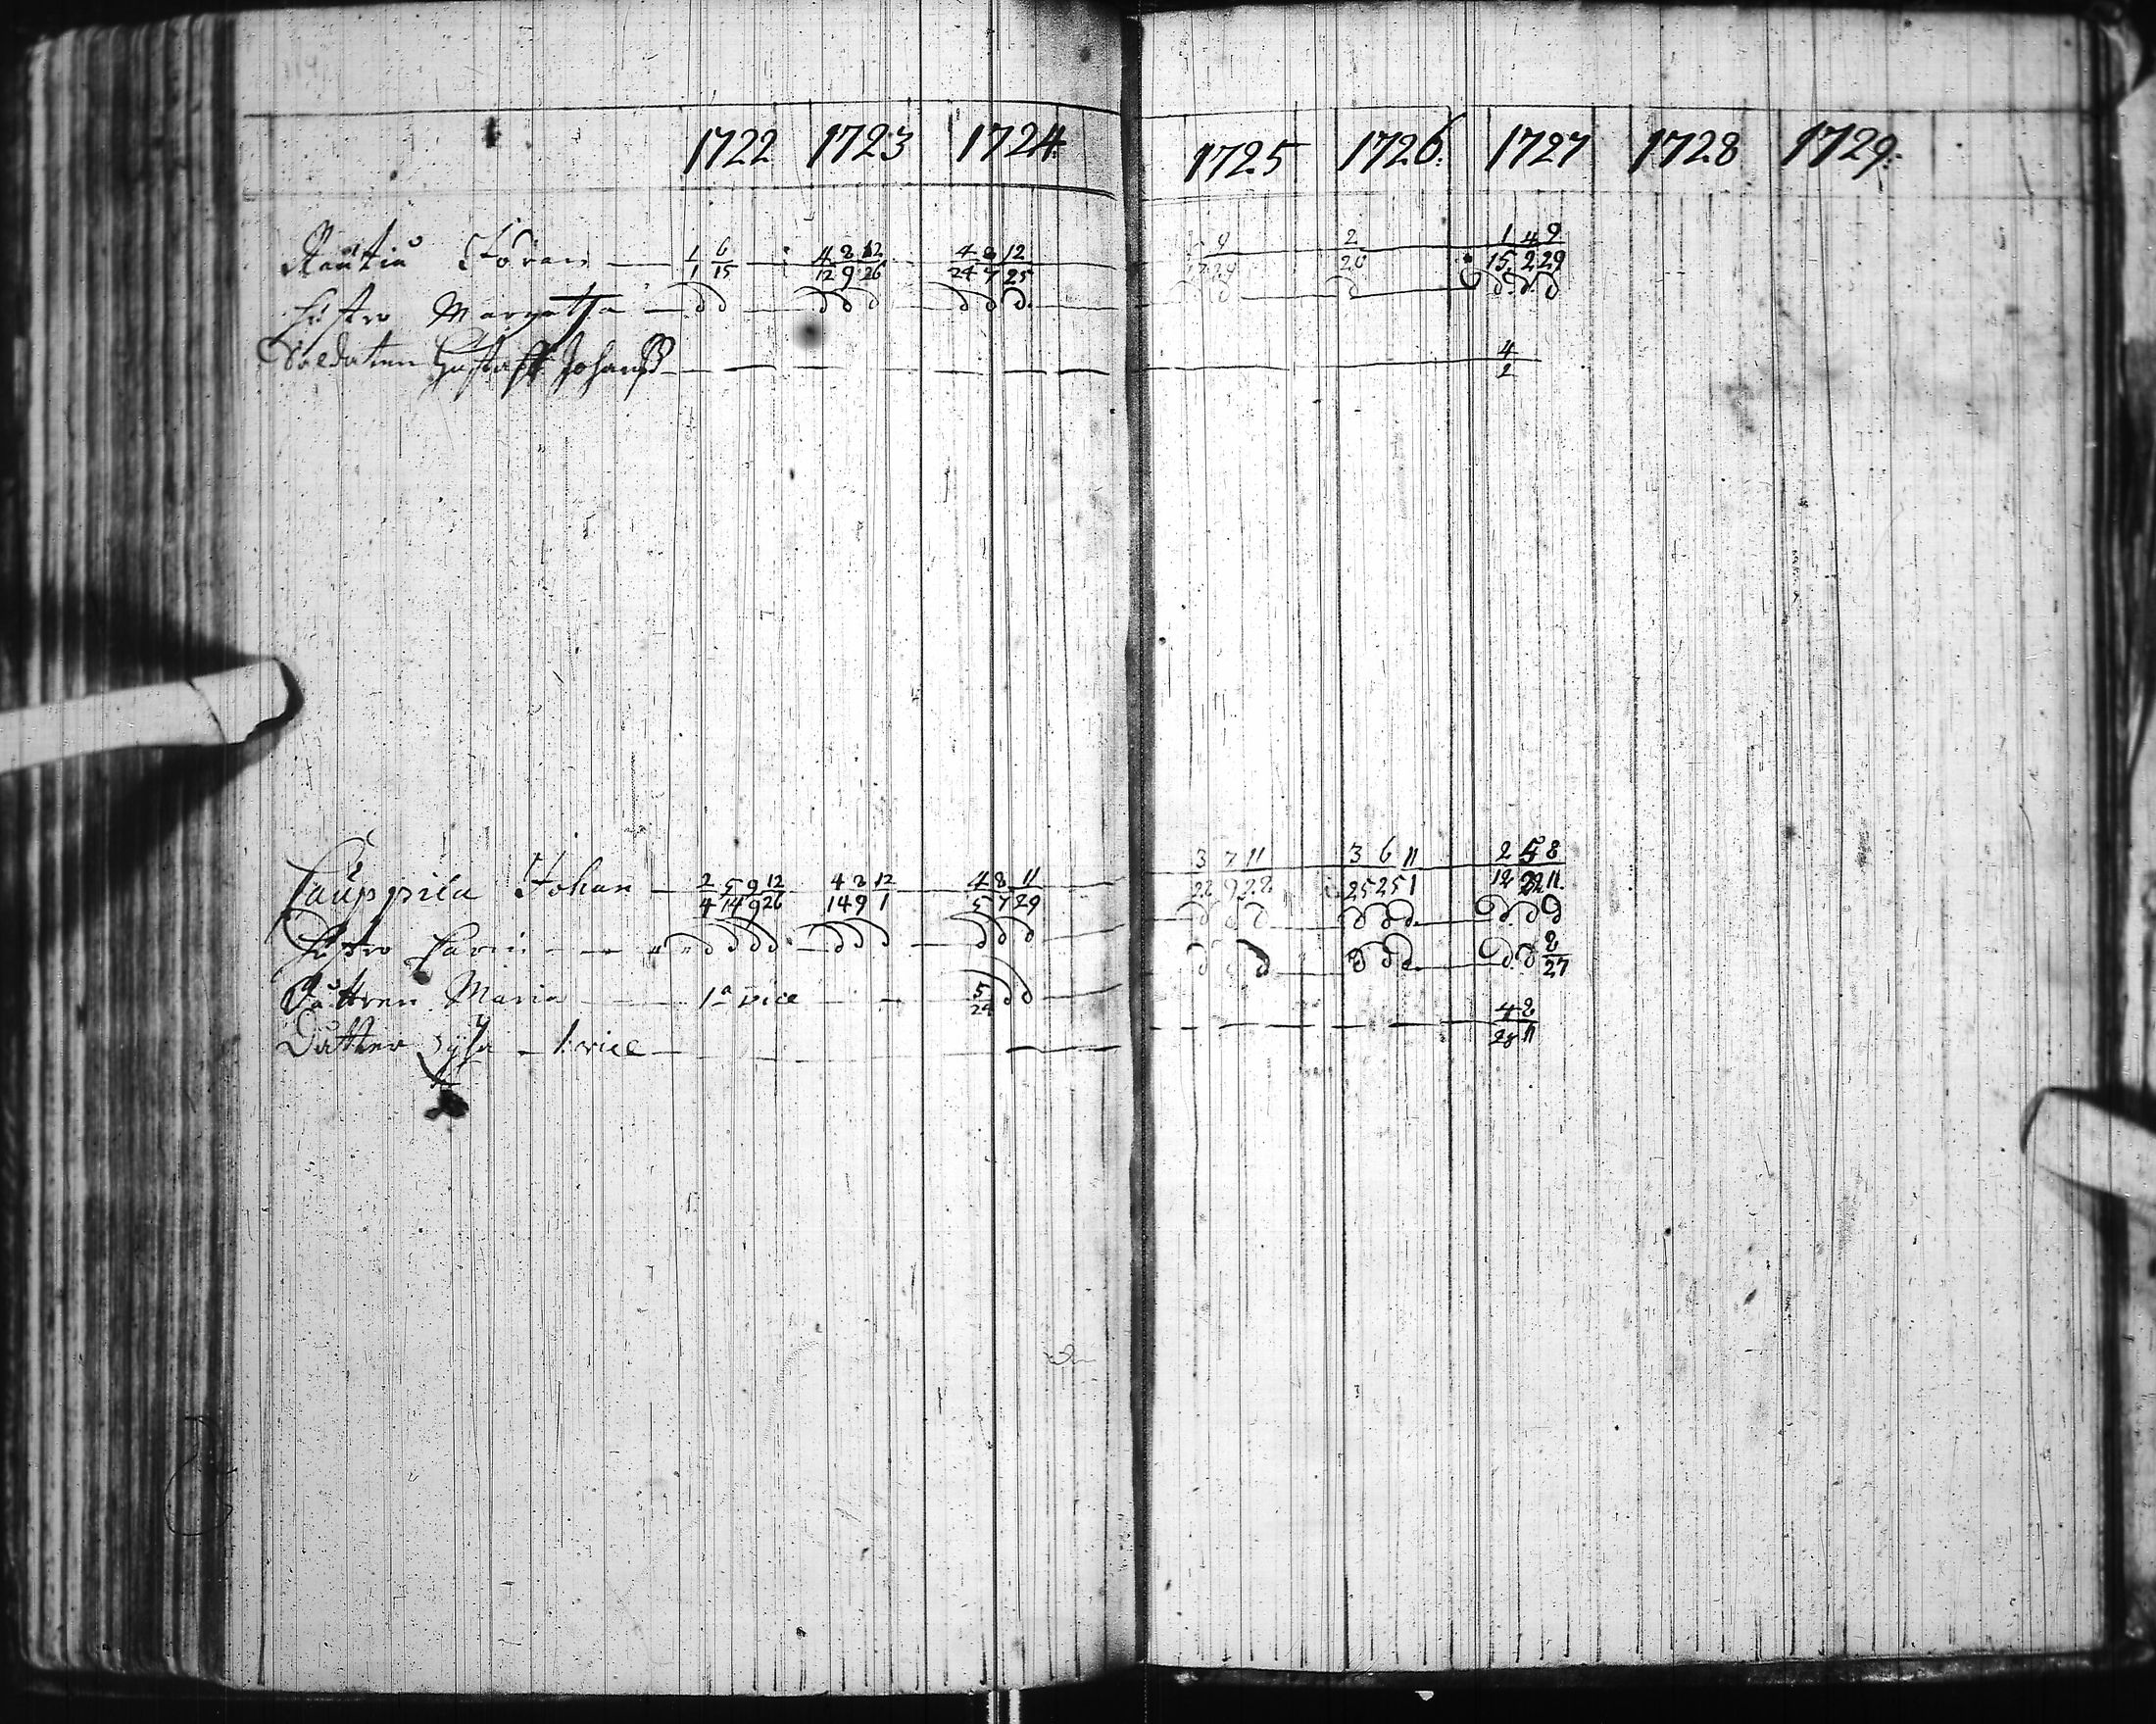 1722 1723 1724 1725 1726. 1727 1728 1729.
Rautiu Jöran 1/1 6/15 4/12 8/9 12/26 4/24 8/7 12/25 2/20 1/15 4/2 9/29
Hustro Margetta
Soldaten Gustaff Johanß 4/2
Cauppila Johan 2/4 5/14 9/9 12/26 4/14 8/9 12/1 4/5 8/7 11/29 3/22 7/9 11/28 3/25 6/25 11/1 2/12 5/22 8/11
Hustro Carin
Dottren Maria 1a vice 5/24 8/27
Dotter Lysa 1 vice 4/28 8/11